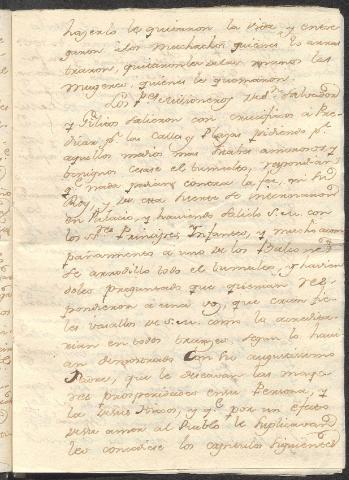 hazerlo les quitaron la vida, y entre
garon a los muchachos, quienes lo arras
traron, quitandoles de las manos las
Mugeres, quienes le quemaron.
Los P.es Misioneros de S.n Salvador
y Gilitos salieron con crucifixos a Pre
dicar p.r las Calles y Plazas pidiendo p.r
aquellos medios mas suabes amorosos y
benignos cesase el tumulto, respondian
q.e nada pedian contra la fee, ni su
Rey, y de esta suerte se
en Palacio, y haviendo salido S.M. con
los S.res Principes, Infantes, y mucho acom
pañamiento a uno de los Balcones
se arrodillo todo el tumulto, y havien
doles preguntado que querian res
pondieron a una voz, que eran fie
les vasallos de S.M. como lo acredita
rian en todos trances segun lo havi
an demostrado con su augustissimo
Padre, que le deseavan las mayo
res prosperidades en su Persona, y
la de sus Hijos, y q.e por un efecto
de su amor al Pueblo le suplicavan
les concediese los capitulos siguientes